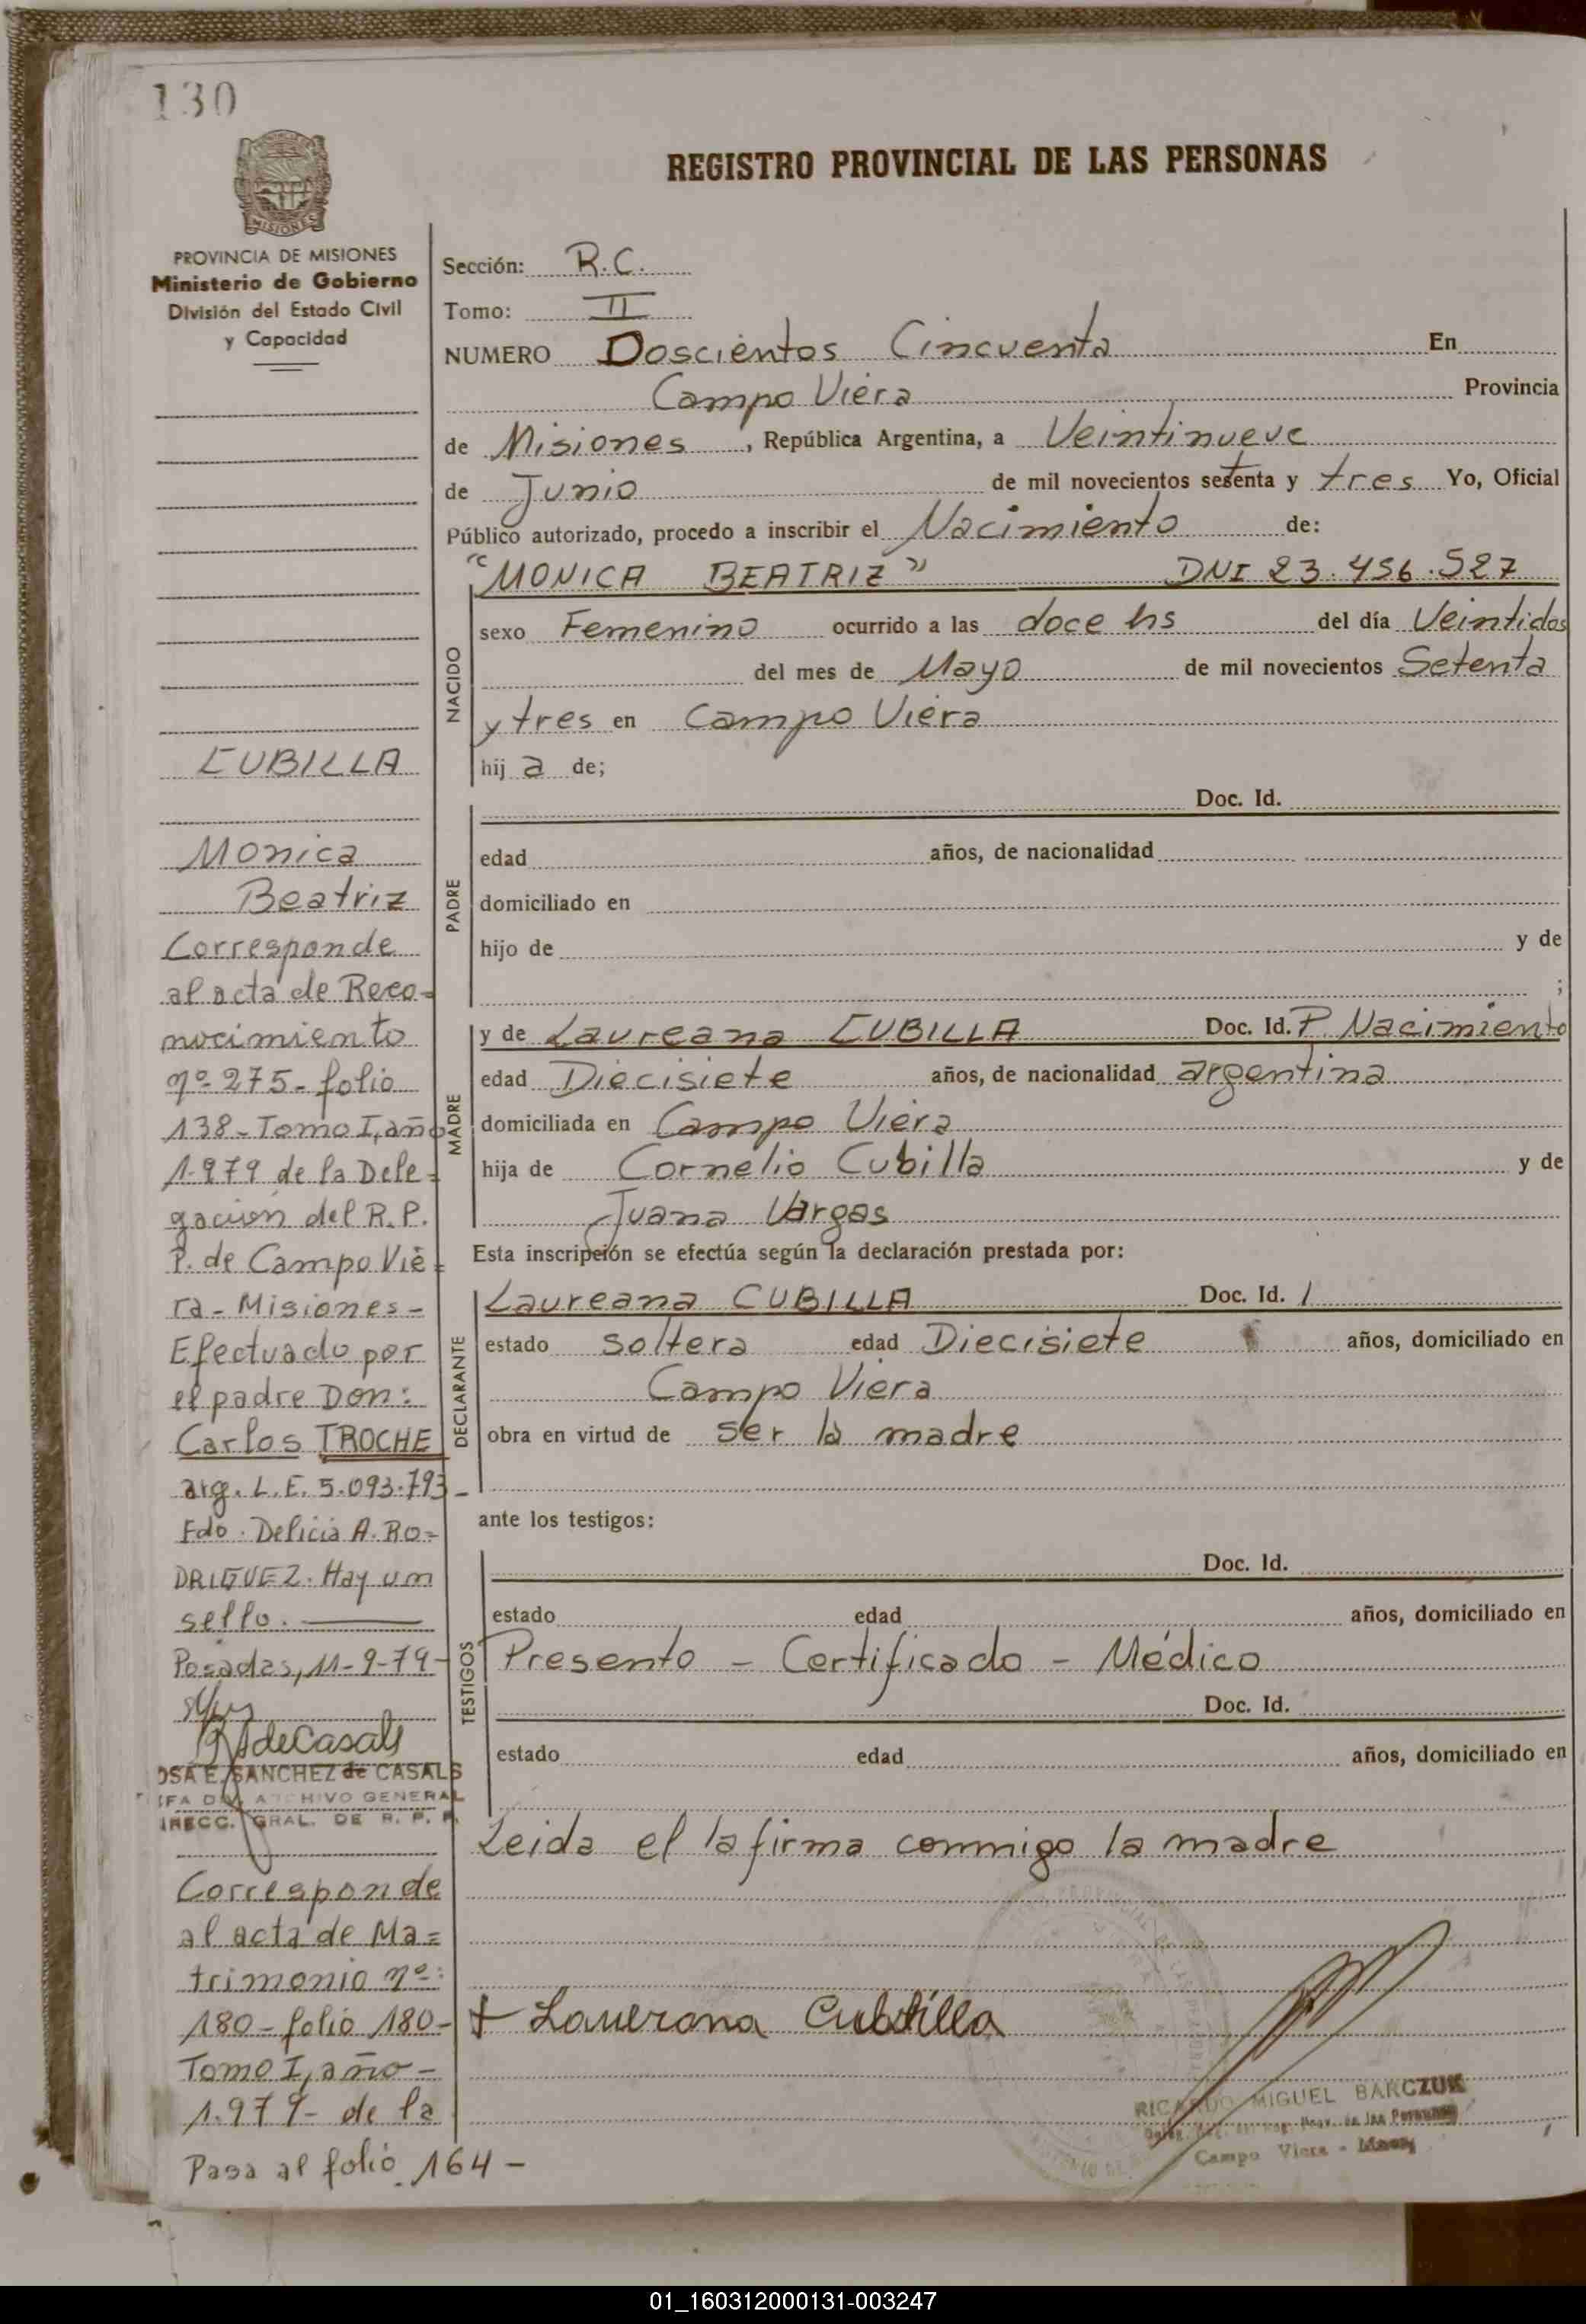 130
MISIONES
PROVINCIA DE MISIONES
Ministerio de Gobierno
División del Estado Civil
y Capacidad
CUBILLA
Monica
Beatriz
Corresponde
al acta de Reco=
nocimiento
nº 275- folio
138- Tomo I, año
1.979 de la Dele=
gación del R.P.
P. de Campo Vie=
ra - Misiones -
Efectuado por
el padre Don:
Carlos TROCHE
arg. L.E. 5.093.793-
Fdo. Delicia A. RO=
DRIGUEZ. Hay un
sello.
Posadas, 11-9-79-
RSdeCasals
OSA E. SANCHEZ de CASALS
EFA DIV. ARCHIVO GENERAL
IRECC. GRAL. DE R. P. P.
Corresponde
al acta de Ma=
trimonio nº:
180- folio 180-
Tomo I, año -
1.979- de la
Pasa al folio 164 -
REGISTRO PROVINCIAL DE LAS PERSONAS
Sección: R.C.
Tomo: II
NUMERO Doscientos Cincuenta En
Campo Viera Provincia
de Misiones, República Argentina, a Veintinueve
de Junio de mil novecientos setenta y tres Yo, Oficial
Público autorizado, procedo a inscribir el Nacimiento de:
"MONICA BEATRIZ" DNI 23.456.527
NACIDO
sexo Femenino ocurrido a las doce hs del día Veintidos
del mes de Mayo de mil novecientos Setenta
y tres en Campo Viera
hij a de;
Doc. Id.
PADRE
edad años, de nacionalidad
domiciliado en
hijo de y de
;
MADRE
y de Laureana CUBILLA Doc. Id. P. Nacimiento
edad Diecisiete años, de nacionalidad argentina
domiciliada en Campo Viera
hija de Cornelio Cubilla y de
Juana Vargas
Esta inscripción se efectúa según la declaración prestada por:
DECLARANTE
Laureana CUBILLA Doc. Id. /
estado soltera edad Diecisiete años, domiciliado en
Campo Viera
obra en virtud de ser la madre
ante los testigos:
TESTIGOS
Doc. Id.
estado edad años, domiciliado en
Presento - Certificado - Médico
Doc. Id.
estado edad años, domiciliado en
Leida el la firma conmigo la madre
+ Laurerana Cubilla
RICARDO MIGUEL BARCZUK
Campo Viera - Mnes.
01_160312000131-003247